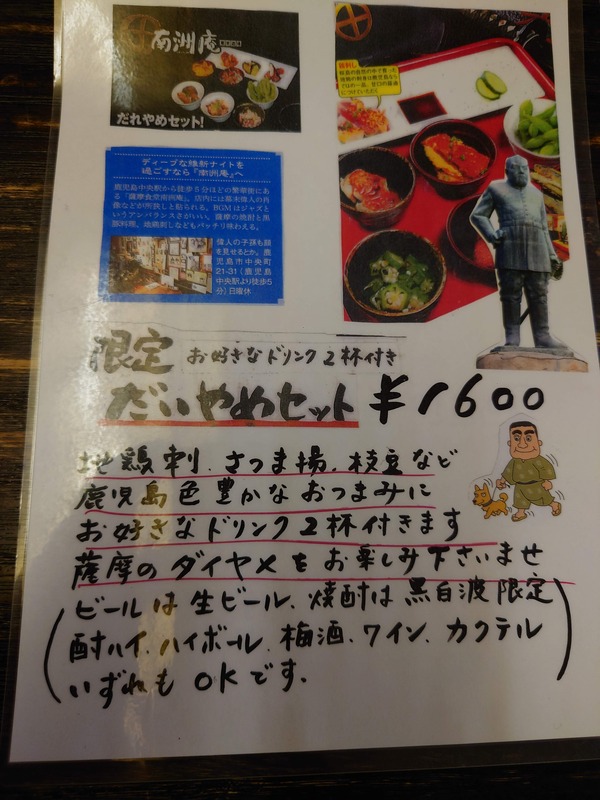 南洲庵
だれやめセット!
鶏刺し
ディープな維新ナイトを
過ごすなら『南洲庵』へ
鹿児島中央駅から徒歩5分ほどの繁華街にある「薩摩食堂南洲庵」。店内には幕末偉人の肖像などが所狭しと貼られる。BGMはジャズというアンバランスさがいい。薩摩の焼酎と黒豚料理、地鶏刺しなどもバッチリ味わえる。
偉人の子孫も顔
を見せるとか。鹿
児島市中央町
21-31(鹿児島
中央駅より徒歩5
分)日曜休
限定 お好きなドリンク2杯付き
だいやめセット ¥1600
地鶏刺、さつま揚、枝豆など
鹿児島色豊かなおつまみに
お好きなドリンク2杯付きます
薩摩のダイヤメをお楽しみ下さいませ
(ビールは生ビール、焼酎は黒白波限定
酎ハイ、ハイボール、梅酒、ワイン、カクテル
いずれもOKです。)